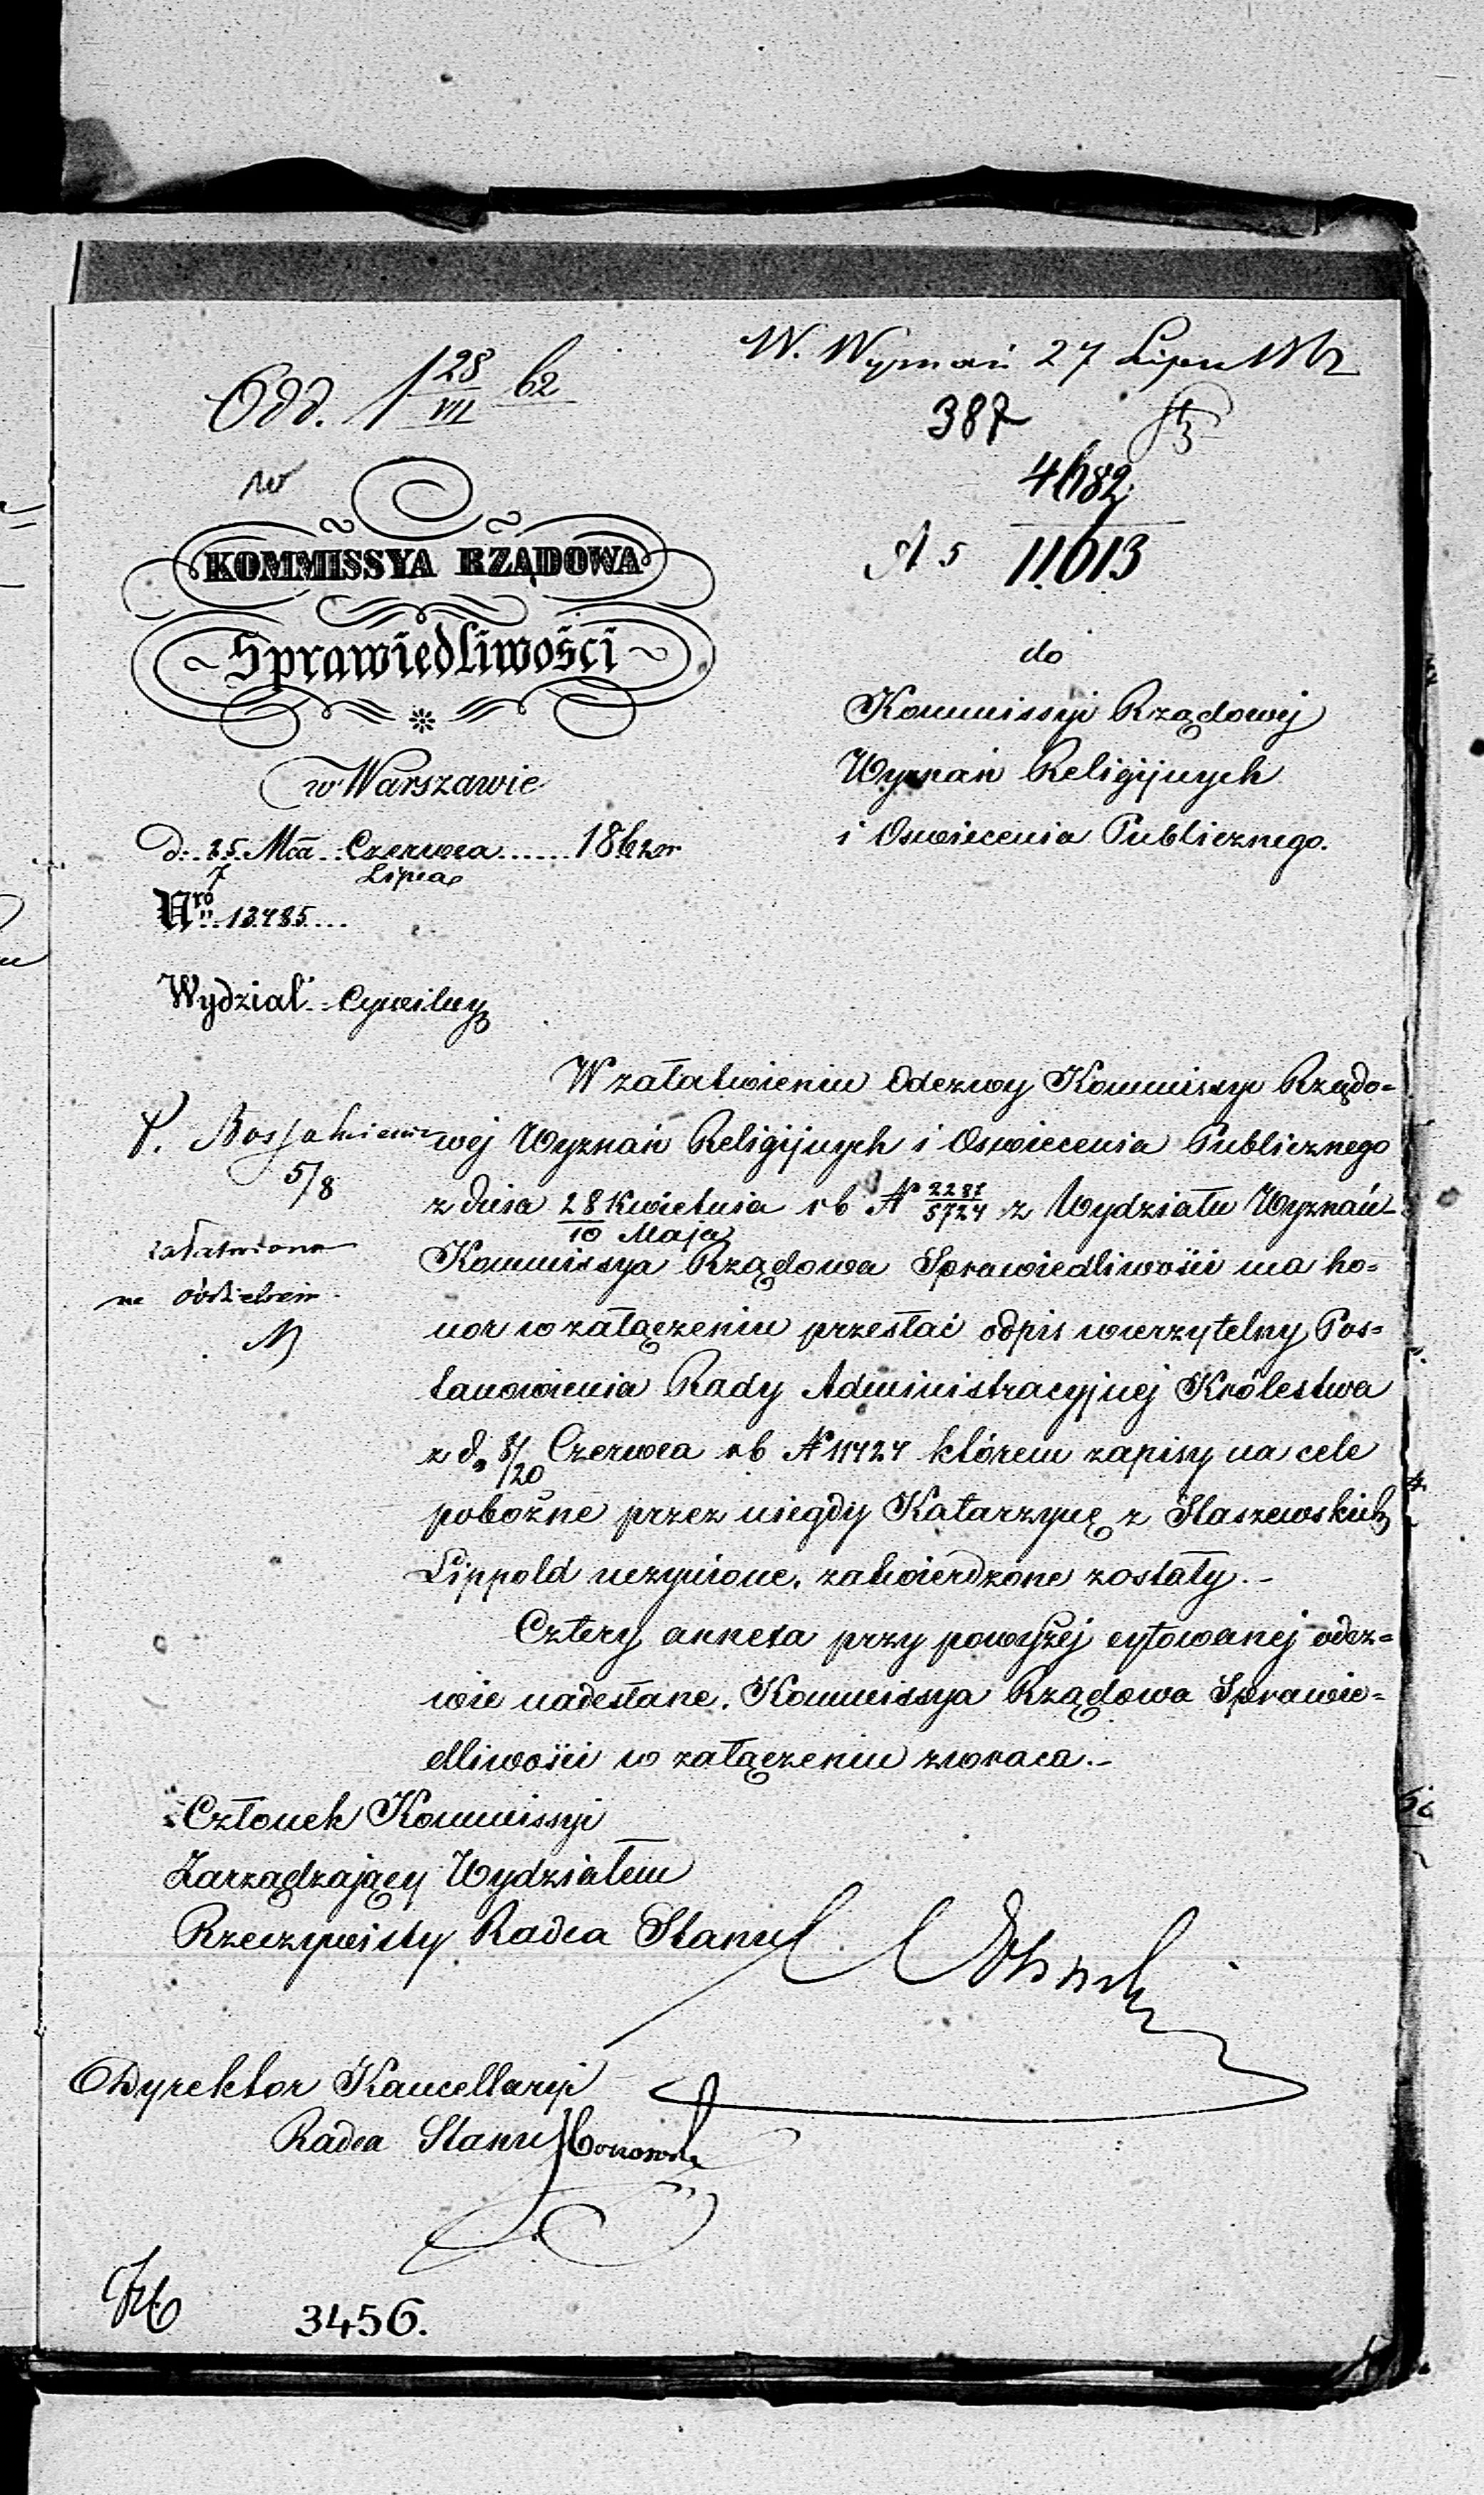 W. Wyznań 27 Lipca 1862
Odd. 1 28/VII 62
387
4682
A 5 11013
KOMMISSYA RZĄDOWA
Sprawiedliwości
w Warszawie
d. 25 Mca Czerwca 1862 r
7 Lipca
Nro 13485
Wydział Cywilny
do
Kommissyi Rządowej
Wyznań Religijnych
i Oswiecenia Publicznego.
W załatwieniu Odezwy Kommissyi Rządo=
wéj Wyznań Religijnych i Oswiecenia Publicznego
z dnia 28 Kwietnia / 10 Maja r b N 2287/5724 z Wydziału Wyznań
Kommissya Rządowa Sprawiedliwości ma ho=
nor w załączeniu przesłać odpis wierzytelny Pos=
tanowienia Rady Administracyjnej Królestwa
z d. 8/20 Czerwca r b N 11424 którem zapisy na cele
pobożne przez niegdy Katarzynę z Staszewskich
Lippold uczynione, zatwierdzone zostały.-
Cztery annexa przy powyżéj cytowanéj odez=
wie nadesłane, Kommissya Rządowa Sprawie=
dliwości w załączeniu zwraca.-
P.
5/8
załatwiono
na oddzielnem
Członek Kommissyi
Zarządzający Wydziałem
Rzeczywisty Radca Stanu
Dyrektor Kancellaryi
Radca Stanu
3456.